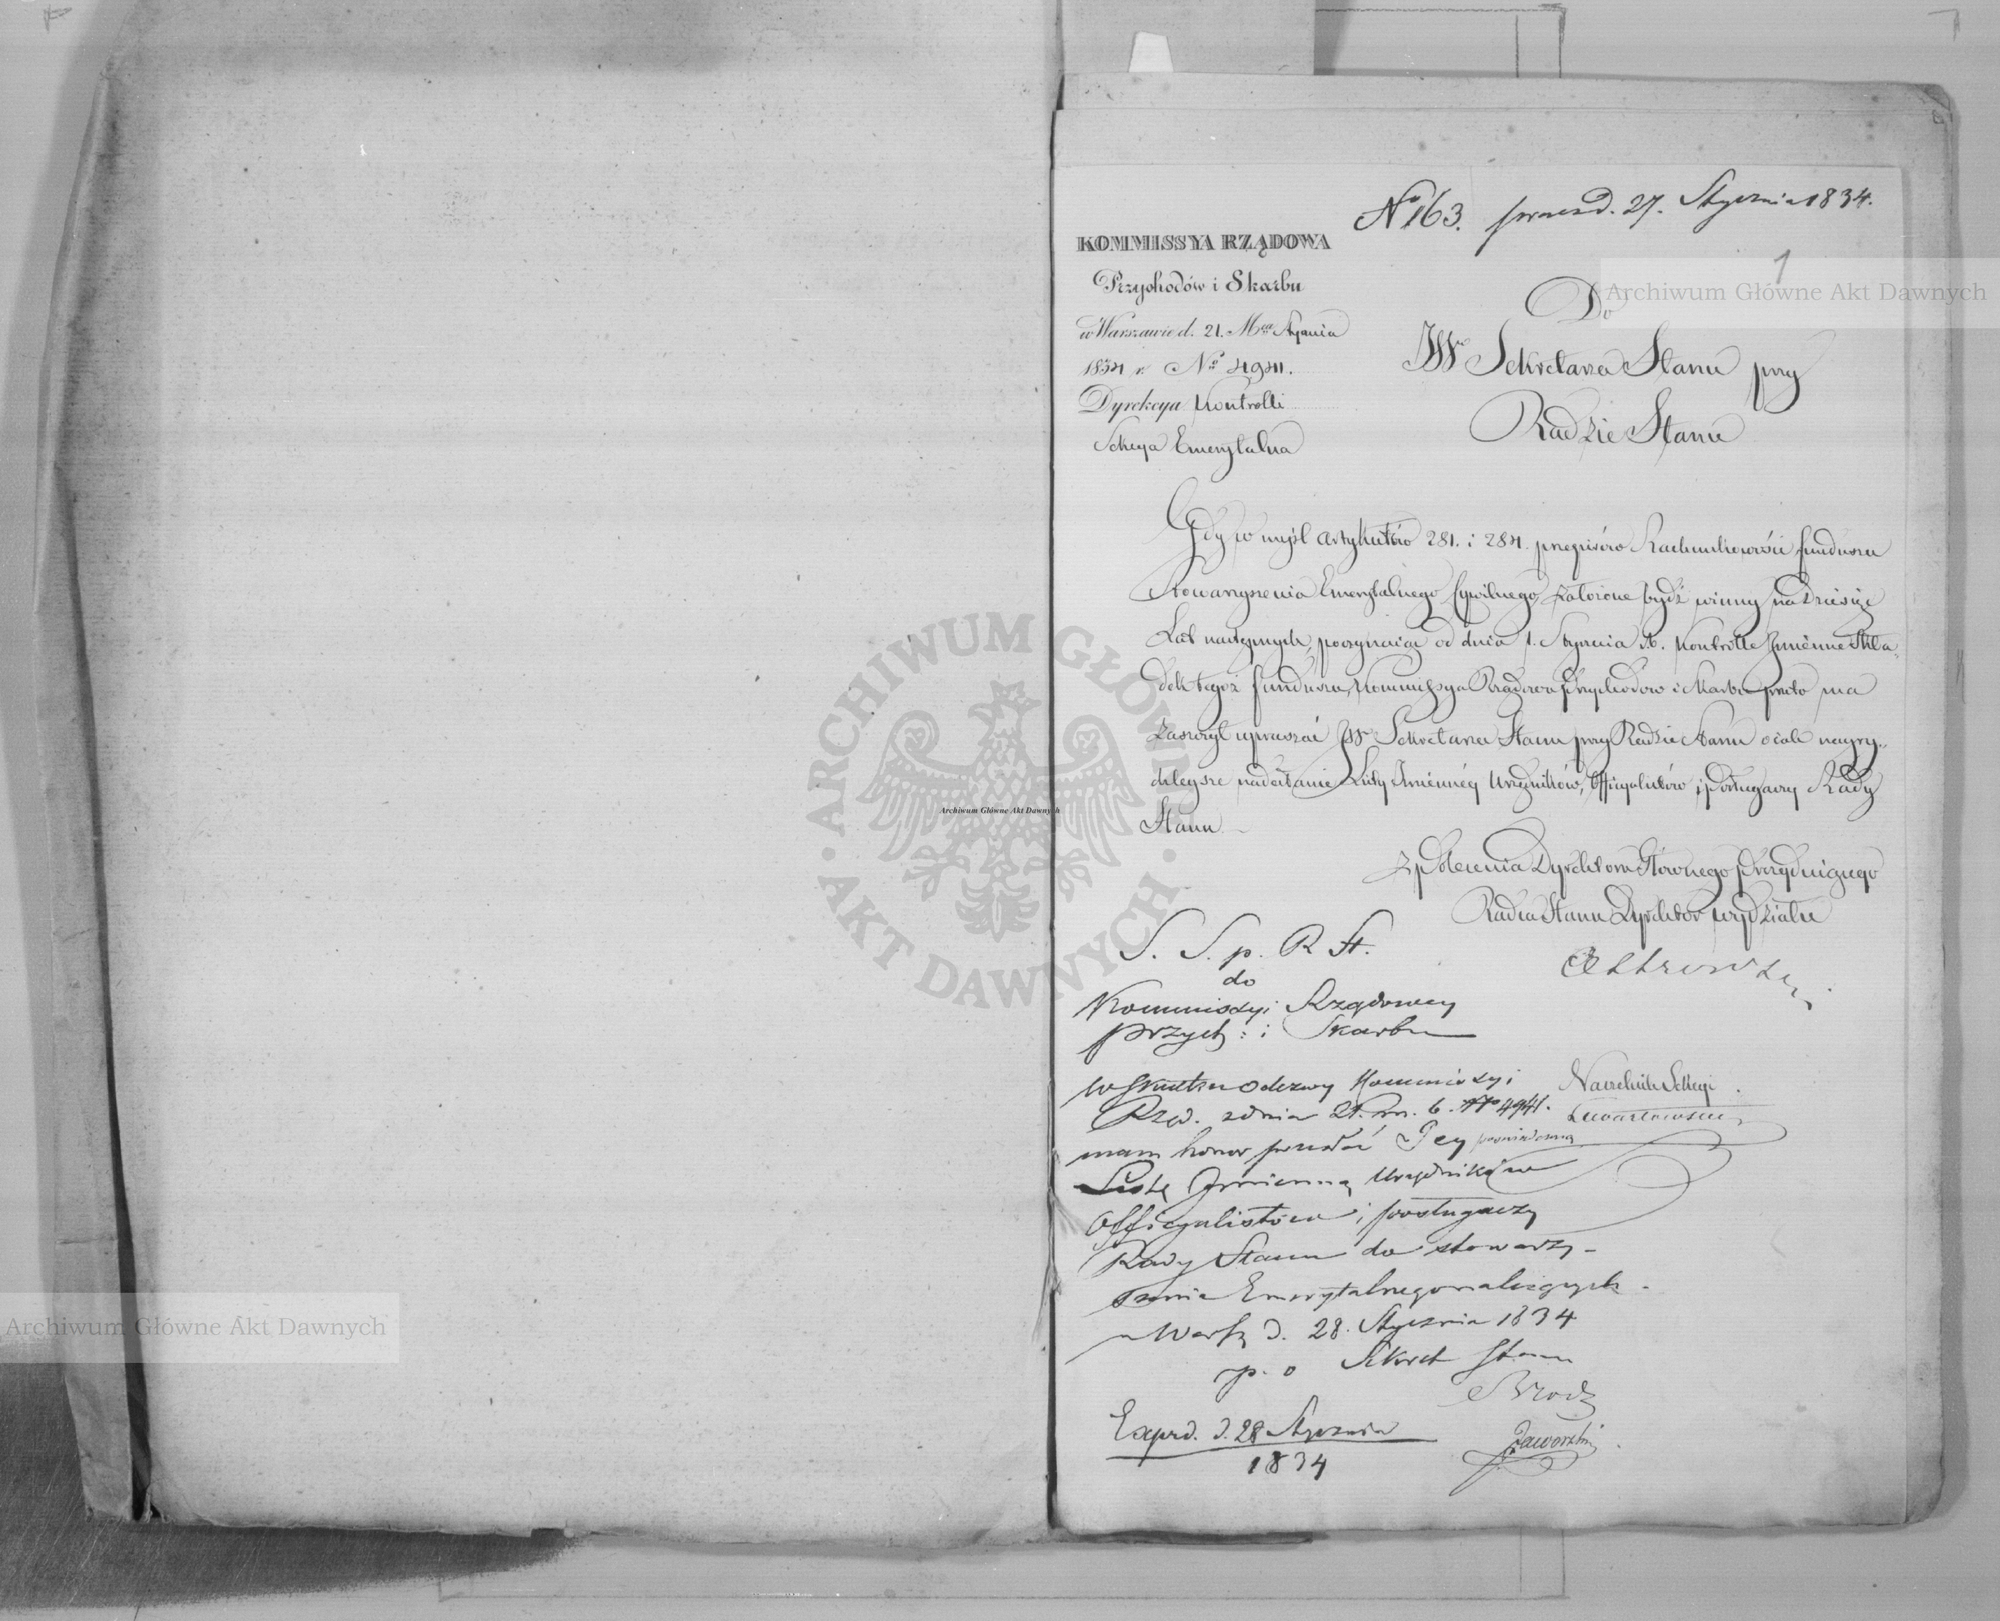 No 163. praes d. 27. Stycznia 1834.
1
KOMMISSYA RZĄDOWA
Przychodów i Skarbu
w Warszawie d. 21. Mca Stycznia
1834 r. No 4941.
Dyrekcya Kontrolli
Sekcya Emerytalna
Do
JW Sekretarza Stanu przy
Radzie Stanu
Gdy w myśl artykułów 281. i 284. przepisów Rachunkowości funduszu
Stowarzyszenia Emerytalnego Cywilnego, założone bydź winny na dziesięć
Lat następnych, poczynając od dnia 1. Stycznia r. b. Kontrolle Jmienne Skła-
dek tegoż funduszu, Kommissya Rządowa Przychodów i Skarbu przeto ma
zaszczyt upraszać JW Sekretarza Stanu przy Radzie Stanu o jak nayry-
chleysze nadesłanie Listy Jmiennéy Urzędników, Officyalistów i posługaczy Rady
Stanu
z polecenia Dyrektora Głównego Prezyduiącego
Radca Stanu Dyrektor wydziału
Naczelnik Sekcyi
S. S. p. R St.
do
Kommissyi Rządowey
Przych: i Skarbu
W skutku odezwy Kommissyi
Rząd. z dnia 21. m. b. No 4941.
mam honor przesłać Jey
Listę Jmienną Urzędników
Officyalistów i posługaczy
Rady Stanu do stowarzy-
szenia Emerytalnego należących.
w Warsz d. 28. Stycznia 1834
p. o Sekret Stanu
Brodz
Jaworski
Exped. d. 28 Stycznia
1834
Archiwum Główne Akt Dawnych
Archiwum Główne Akt Dawnych
Archiwum Główne Akt Dawnych
ARCHIWUM GŁÓWNE · AKT DAWNYCH ·